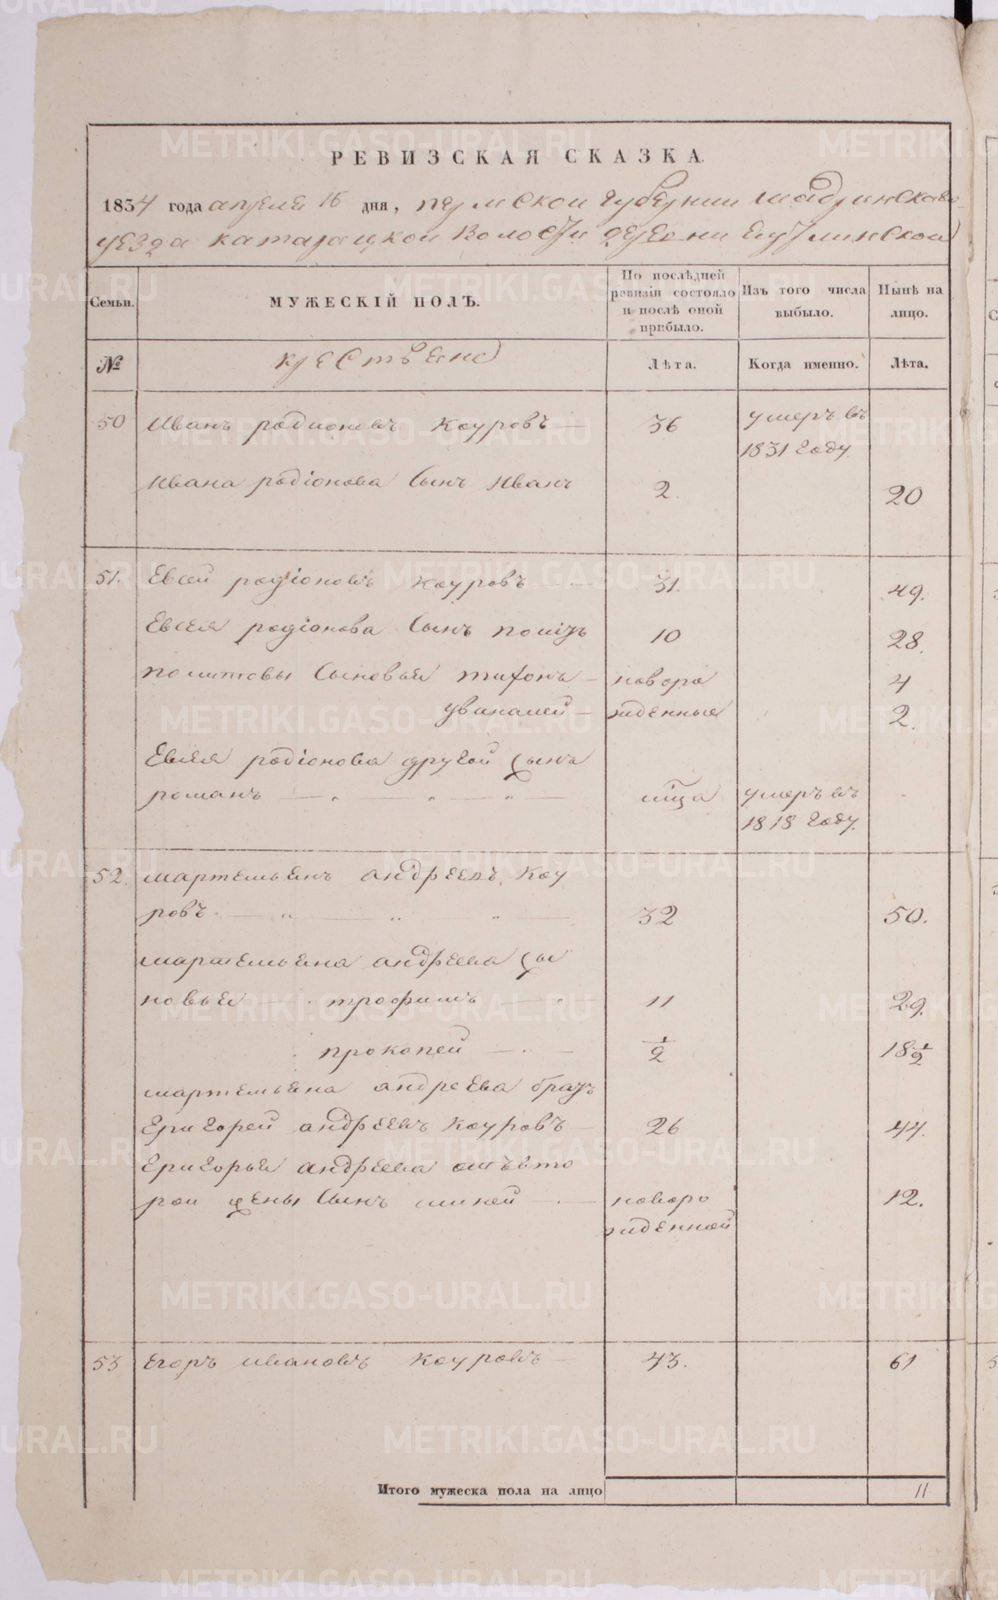 РЕВИЗСКАЯ СКАЗКА.
1834 года апреля 15 дня, пермской губернии шадринскаго
уезда катарацкой волости деревни
Семьи.
МУЖЕСКІЙ ПОЛЪ.
По послѣдней ревизіи состояло и послѣ оной прибыло.
Изъ того числа выбыло.
Нынѣ на лицо.
№
крестьяне
Лѣта.
Когда именно.
Лѣта.
50 Иванъ родионовъ Коуровъ — 36 умеръ въ
1831 году
Ивана родіонова сынъ Иванъ 2. 20
51. Евсей родіоновъ Коуровъ — 31. 49.
Евсея родіонова сынъ 10 28.
сыновья тифонъ — новоро 4
— жденныя 2.
Евсея родіонова другой сынъ
романъ — " — " — " — умеръ въ
1818 году.
52. мартемьянъ андреевъ Коу
ровъ. — " — " — " — 32 50.
мартемьяна андреева сы
новья трофимъ — " — 11 29.
прокопей — . — 1/2 18 1/2
мартемьяна андреева братъ
Григорей андреевъ Коуровъ — 26 44.
Григорья андреева отъ вто
рои жены сынъ миней — новоро 12.
жденной
53 Егоръ ивановъ Коуровъ — 43. 61
Итого мужеска пола на лицо 11
METRIKI.GASO-URAL.RU